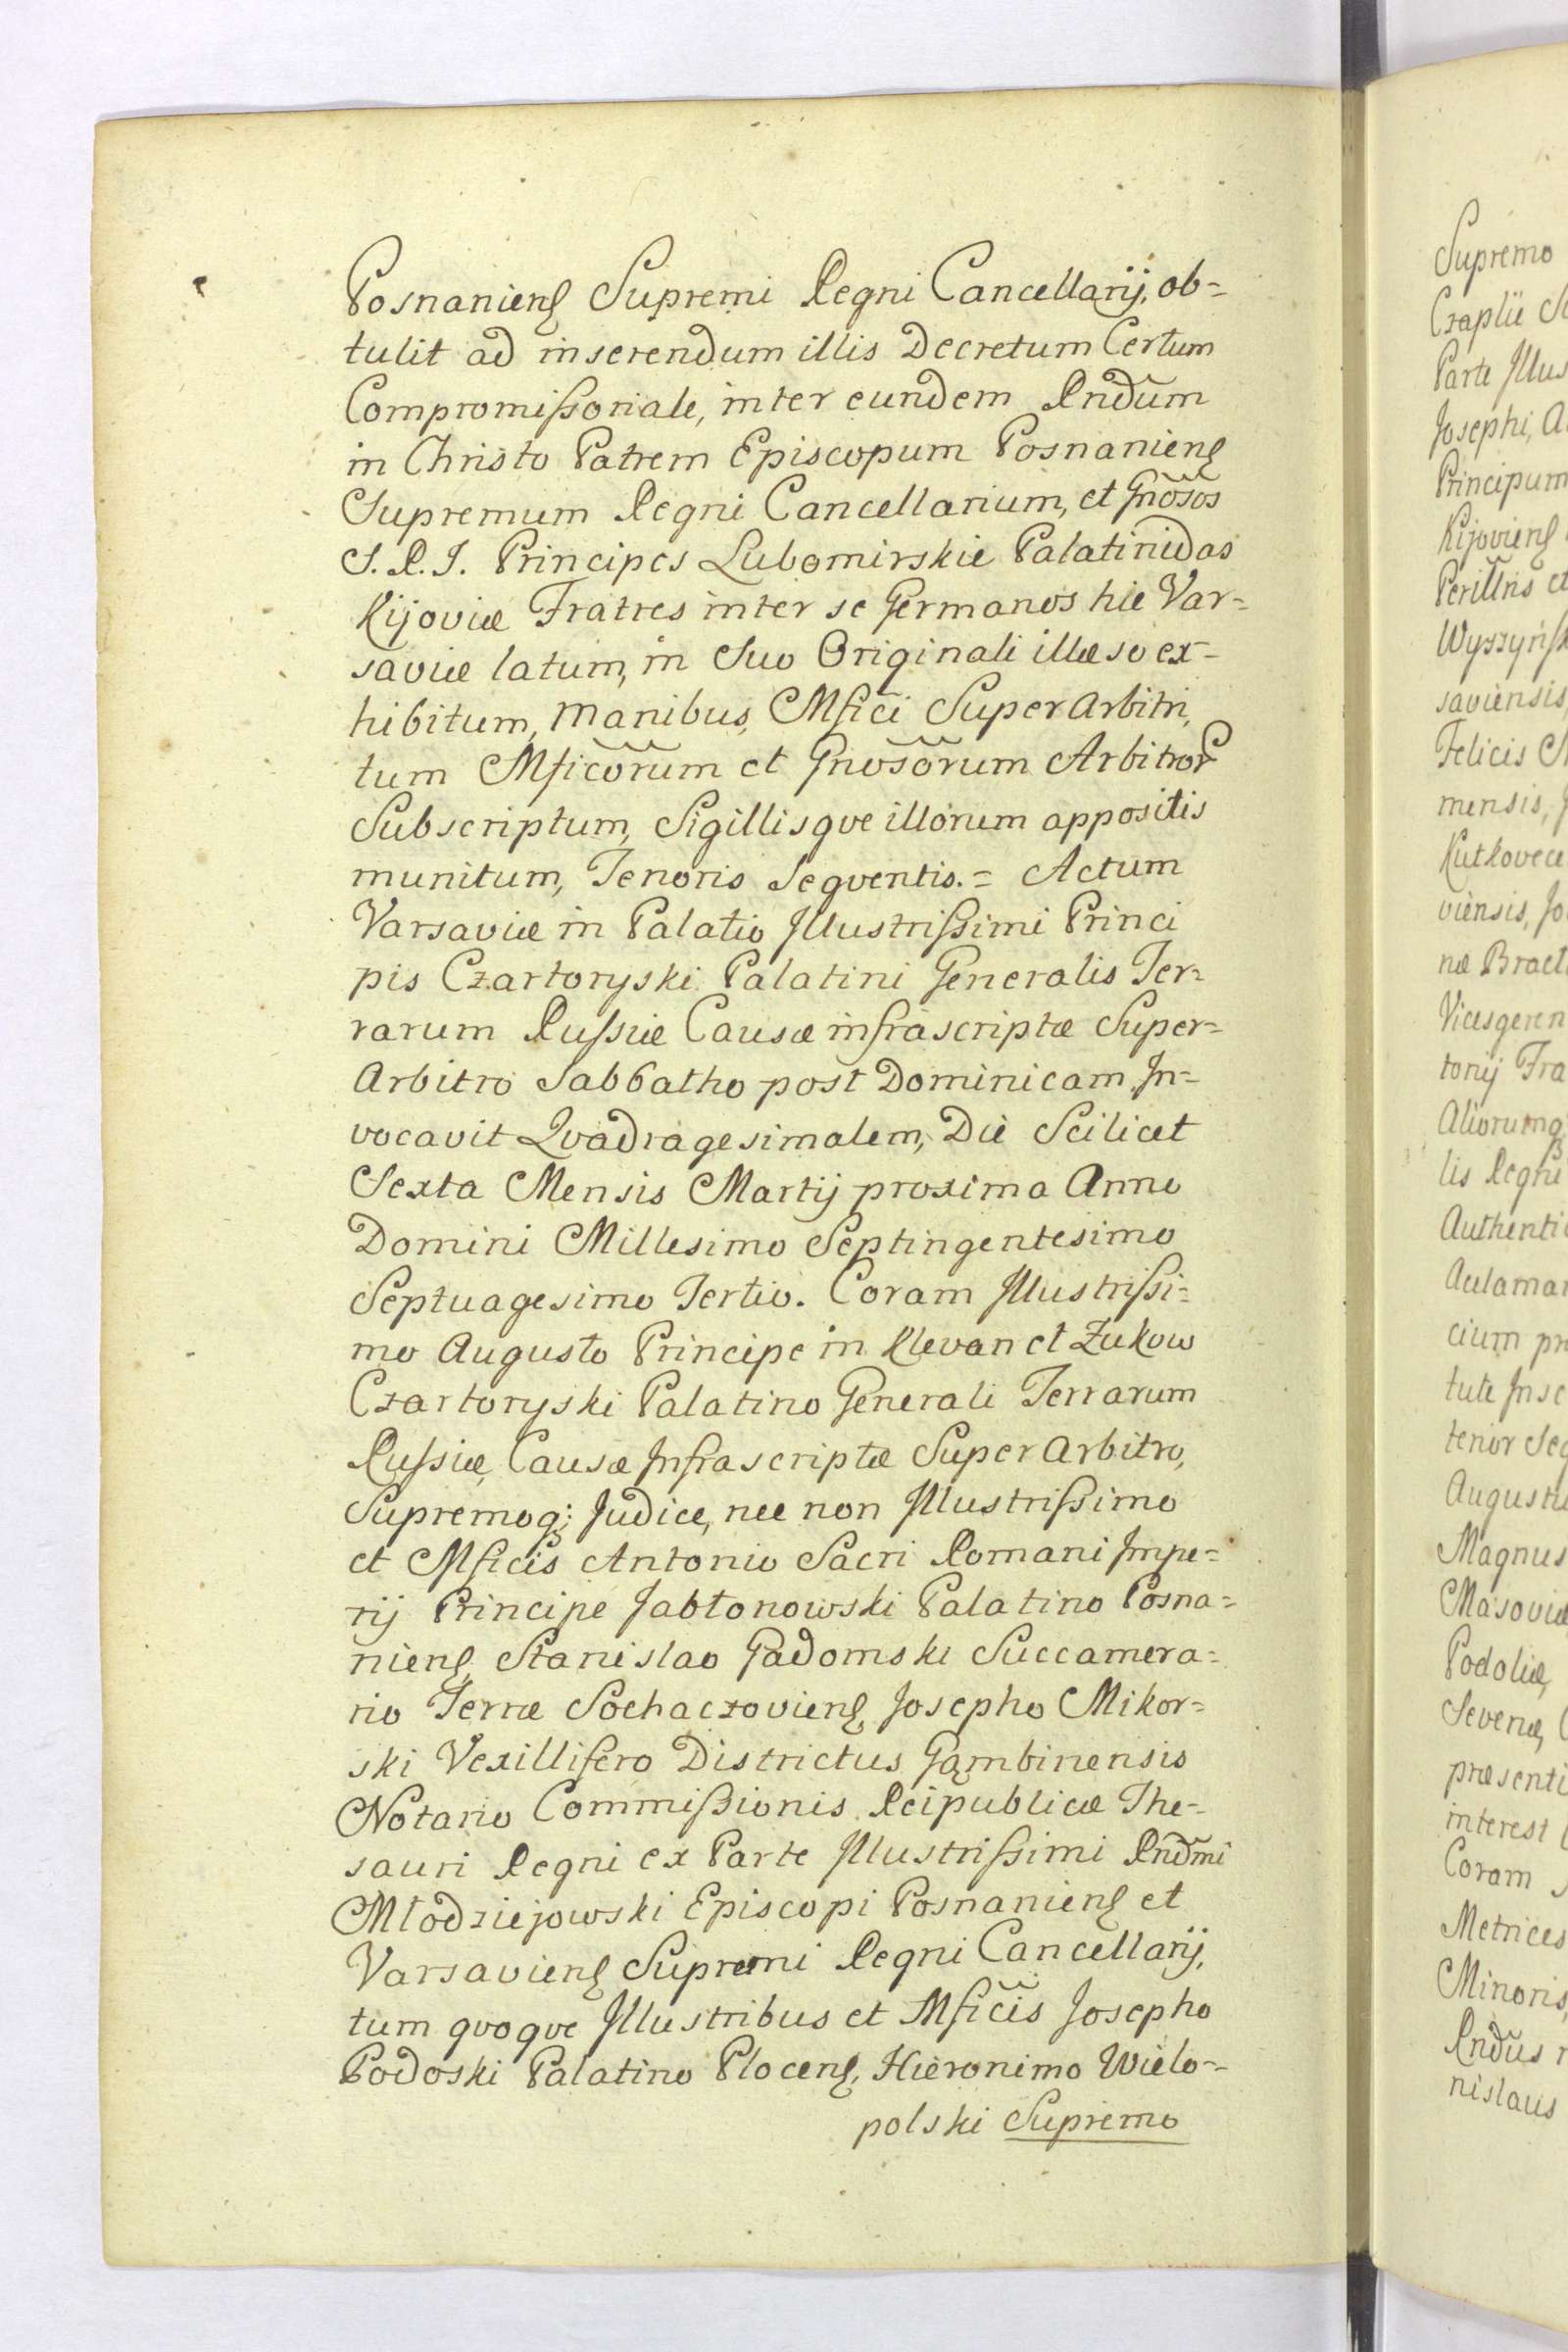 Posnaniens Supremi Regni Cancellarij, ob=
tulit ad inserendum illis Decretum Certum
Compromissoriale, inter eundem Rndum
in Christo Patrem Episcopum Posnaniens
Supremum Regni Cancellarium, et Gnosos
S. R. I. Principes Lubomirskie Palatinidas
Kijoviæ Fratres inter se Germanos hic Var=
saviæ latum, in Suo Originali illæso ex=
hibitum, manibus, Mfici Super Arbitri,
tum Mficorum et Gnosorum Arbitror
Subscriptum, Sigillisqve illorum appositis
munitum, Tenoris Seqventis. = Actum
Varsaviæ in Palatio Illustrissimi Princi
pis Czartoryski Palatini Generalis Ter=
rarum Russiæ Causæ infrascriptæ Super=
Arbitro Sabbatho post Dominicam In=
vocavit Qvadragesimalem, Die Scilicet
Sexta Mensis Martij proxima Anno
Domini Millesimo Septingentesimo
Septuagesimo Tertio. Coram Illustrissi=
mo Augusto Principe in Klevan et Zukow
Czartoryski Palatino Generali Terrarum
Russiæ, Causæ Infrascriptæ Super Arbitro,
Supremoq; Judice, nec non Illustrissimo
et Mficis Antonio Sacri Romani Impe=
rij Principe Jabłonowski Palatino Posna=
niens, Stanislao Gadomski Succamera=
rio Terræ Sochaczoviens, Josepho Mikor=
ski Vexillifero Districtus Gąmbinensis
Notario Commissionis Reipublicæ The=
sauri Regni ex Parte Illustrissimi Rndmi
Młodziejowski Episcopi Posnaniens et
Varsaviens Supremi Regni Cancellarij,
tum qvoqve Illustribus et Mficis Josepho
Podoski Palatino Plocens, Hieronimo Wielo=
polski Supremo
Supremo
Czaplic
Parte Illus
Josephi, A
Principum
Kijoviens
Perillris et
Wyszyńsk
saviensis,
Felicis
mensis,
Kutkovece
viensis, Jo
næ Bracl
Vicesgeren
tonij Fra
Aliorumq
lis Regni
Authentic
Aulamar
cium pr
tute Inse
tenor Seq
Augustu
Magnus
Masoviæ
Podoliæ,
Severiæ,
præsenti
interest
Coram
Metrices
Minoris,
Rndus
nislaus